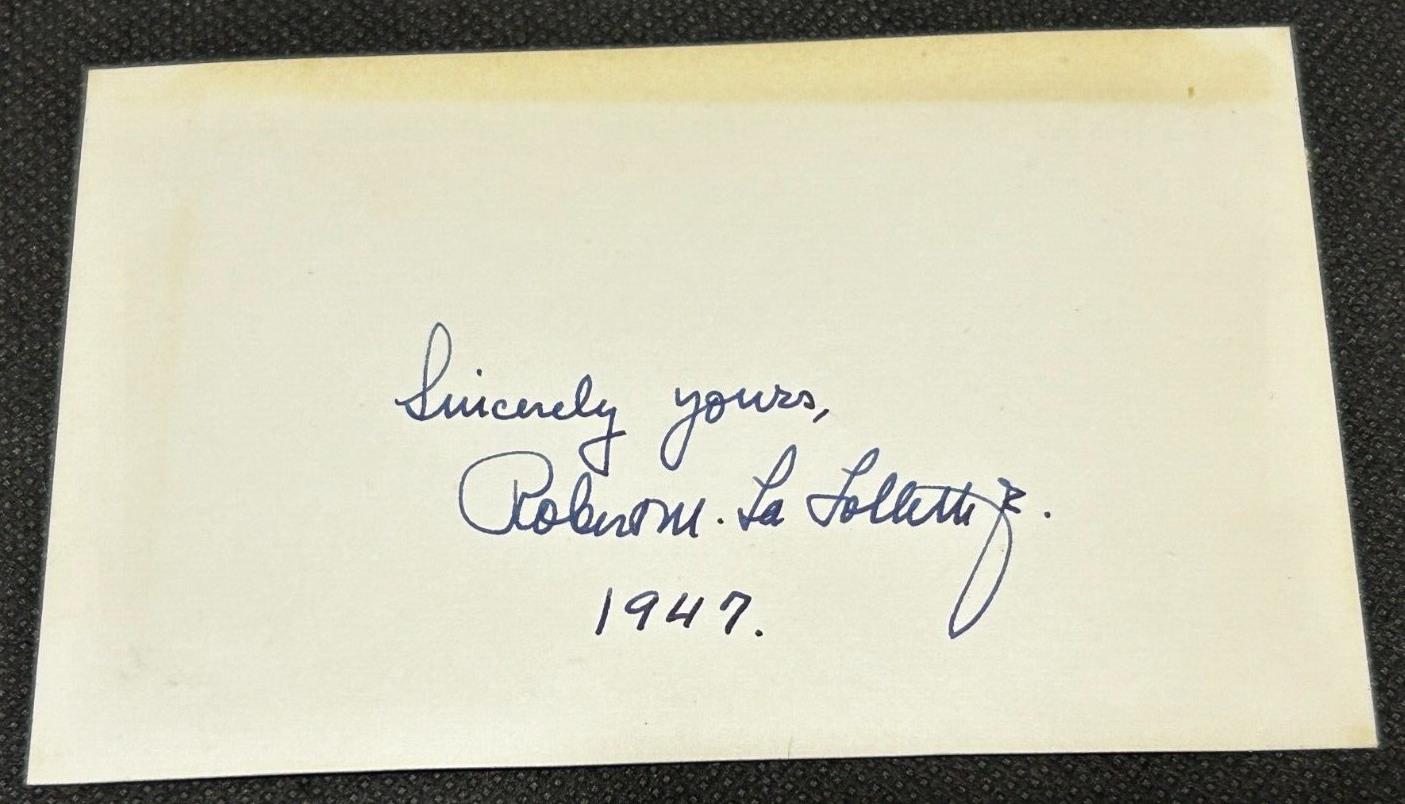 Sincerely yours,
Robert M. La Follette Jr.
1947.